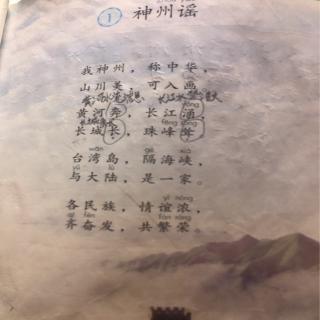 ① 神州谣
我神州，称中华，
山川美，可入画。
黄河奔，长江涌，
长城长，珠峰耸。
台湾岛，隔海峡，
与大陆，是一家。
各民族，情谊浓，
齐奋发，共繁荣。